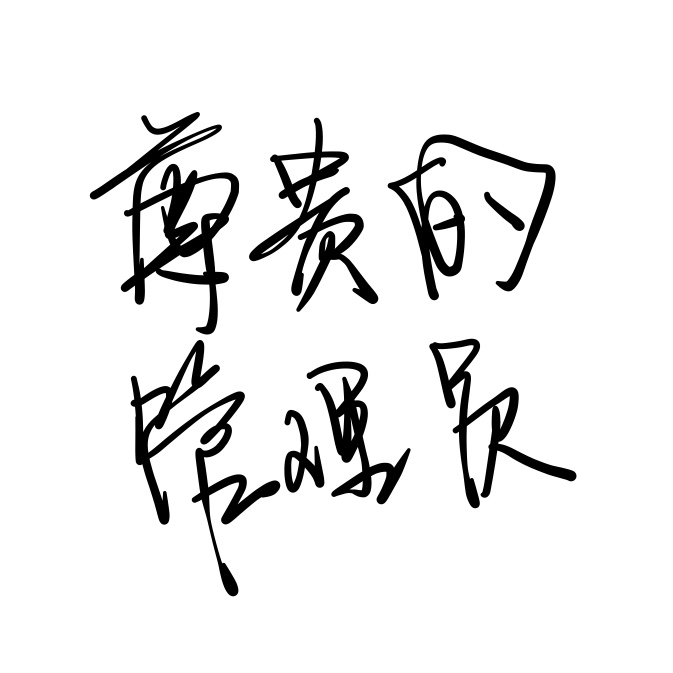 尊贵的
管理员